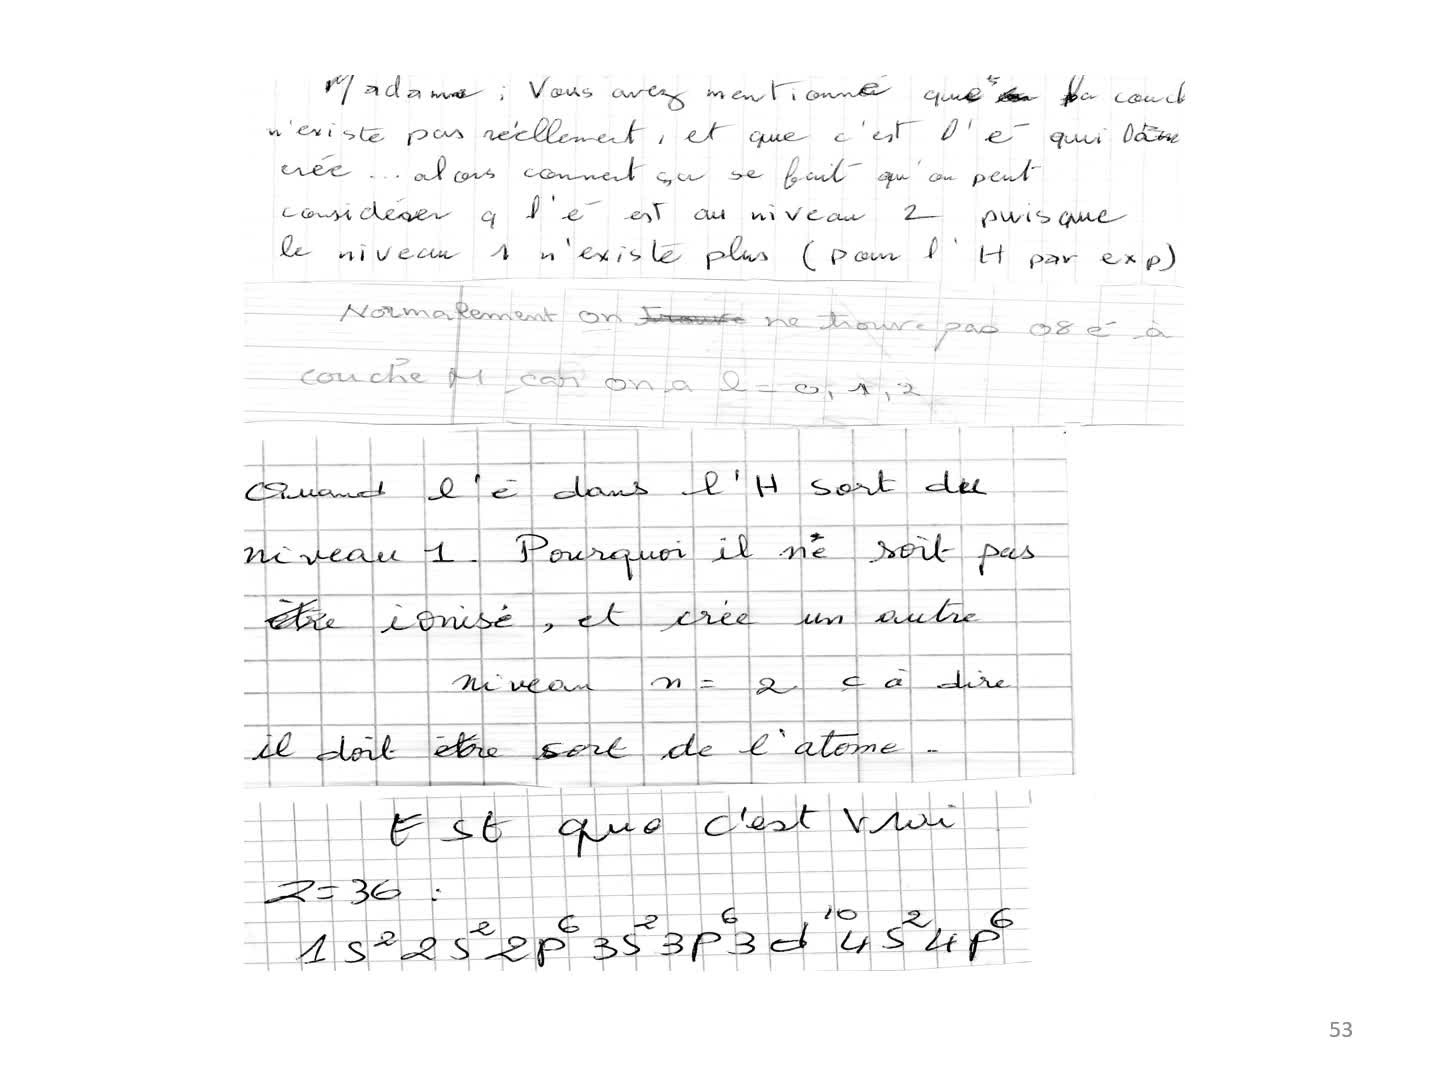 Madame ; Vous avez mentionné que la couch
n'existe pas réellement, et que c'est l'e- qui
crée ... alors comment ça se fait qu'on peut
considérer q l'e- est au niveau 2 puisque
le niveau 1 n'existe plus (pour l'H par exp)
Normalement on ne trouve pas 08 e- à
couche M car on a l = 0, 1, 2
Quand l'e- dans l'H sort du
niveau 1. Pourquoi il ne soit pas
être ionisé, et crée un autre
niveau n = 2 c à dire
il doit être sort de l'atome.
Est que c'est vrai
Z=36 :
1s² 2s² 2p⁶ 3s² 3p⁶ 3d¹⁰ 4s² 4p⁶
53